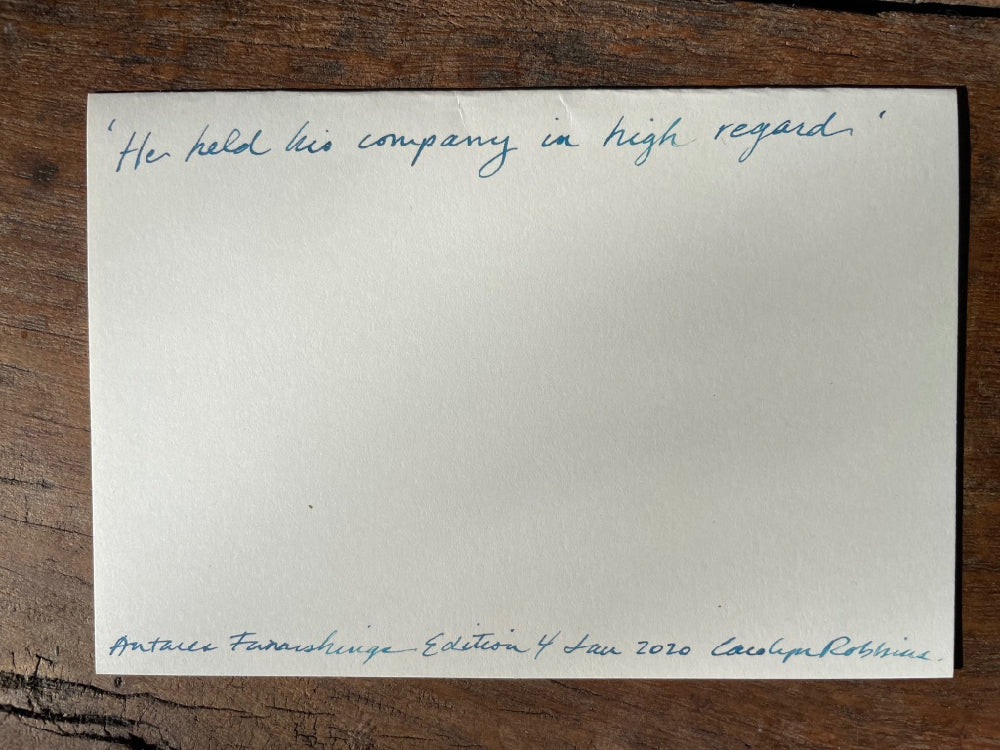 'He held his company in high regard'
Antares Furnarshings Edition 4 Jan 2020 Carolyn Robbins.